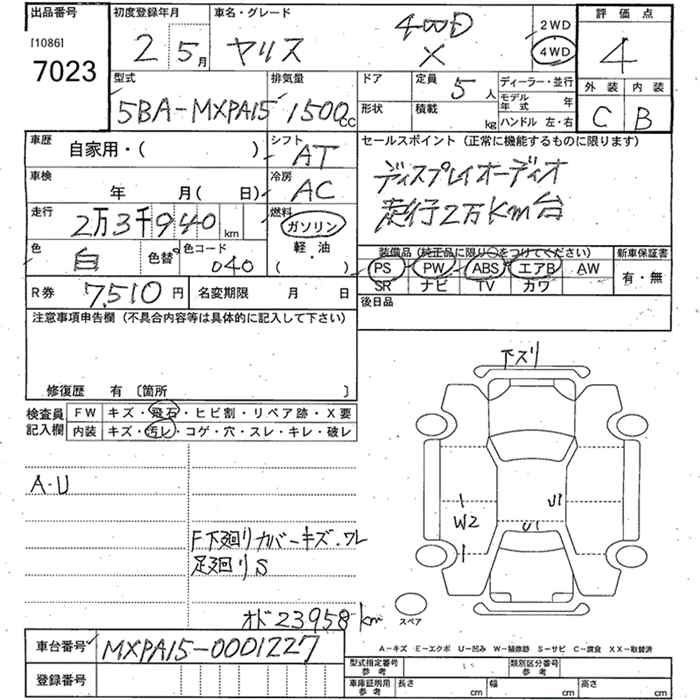 出品番号 初度登録年月 車名・グレード 評価点
[1086] 7023
2 5月 ヤリス 4WD X
2WD
4WD
4
外装 内装
C B
型式 排気量 ドア 定員 ディーラー・並行
5BA-MXPA15 1500cc 5人
形状 積載 kg モデル年式 年
ハンドル 左・右
車歴 自家用・( ) シフト AT
セールスポイント(正常に機能するものに限ります)
ディスプレイオーディオ
走行2万km台
車検 年 月( 日) 冷房 AC
走行 2万3千940km 燃料 ガソリン
軽・油
( )
色 白 色替 色コード 040
装備品(純正品に限り○をつけてください) 新車保証書
PS PW ABS エアB AW 有・無
SR ナビ TV カワ
R券 7,510円 名変期限 月 日
後日品
注意事項申告欄(不具合内容等は具体的に記入して下さい)
修復歴 有〔箇所 〕
検査員記入欄
FW キズ・飛石・ヒビ割・リペア跡・X要
内装 キズ・汚レ・コゲ・穴・スレ・キレ・破レ
A・U
F下廻りカバーキズ・ワレ
足廻りS
オド23958km
下ズリ
U1
W2
U1
スペア
車台番号 MXPA15-0001227
登録番号
A-キズ E-エクボ U-凹み W-補修跡 S-サビ C-腐食 XX-取替済
型式指定番号 参考 類別区分番号 参考
車庫証明用 参考 長さ cm 幅 cm 高さ cm